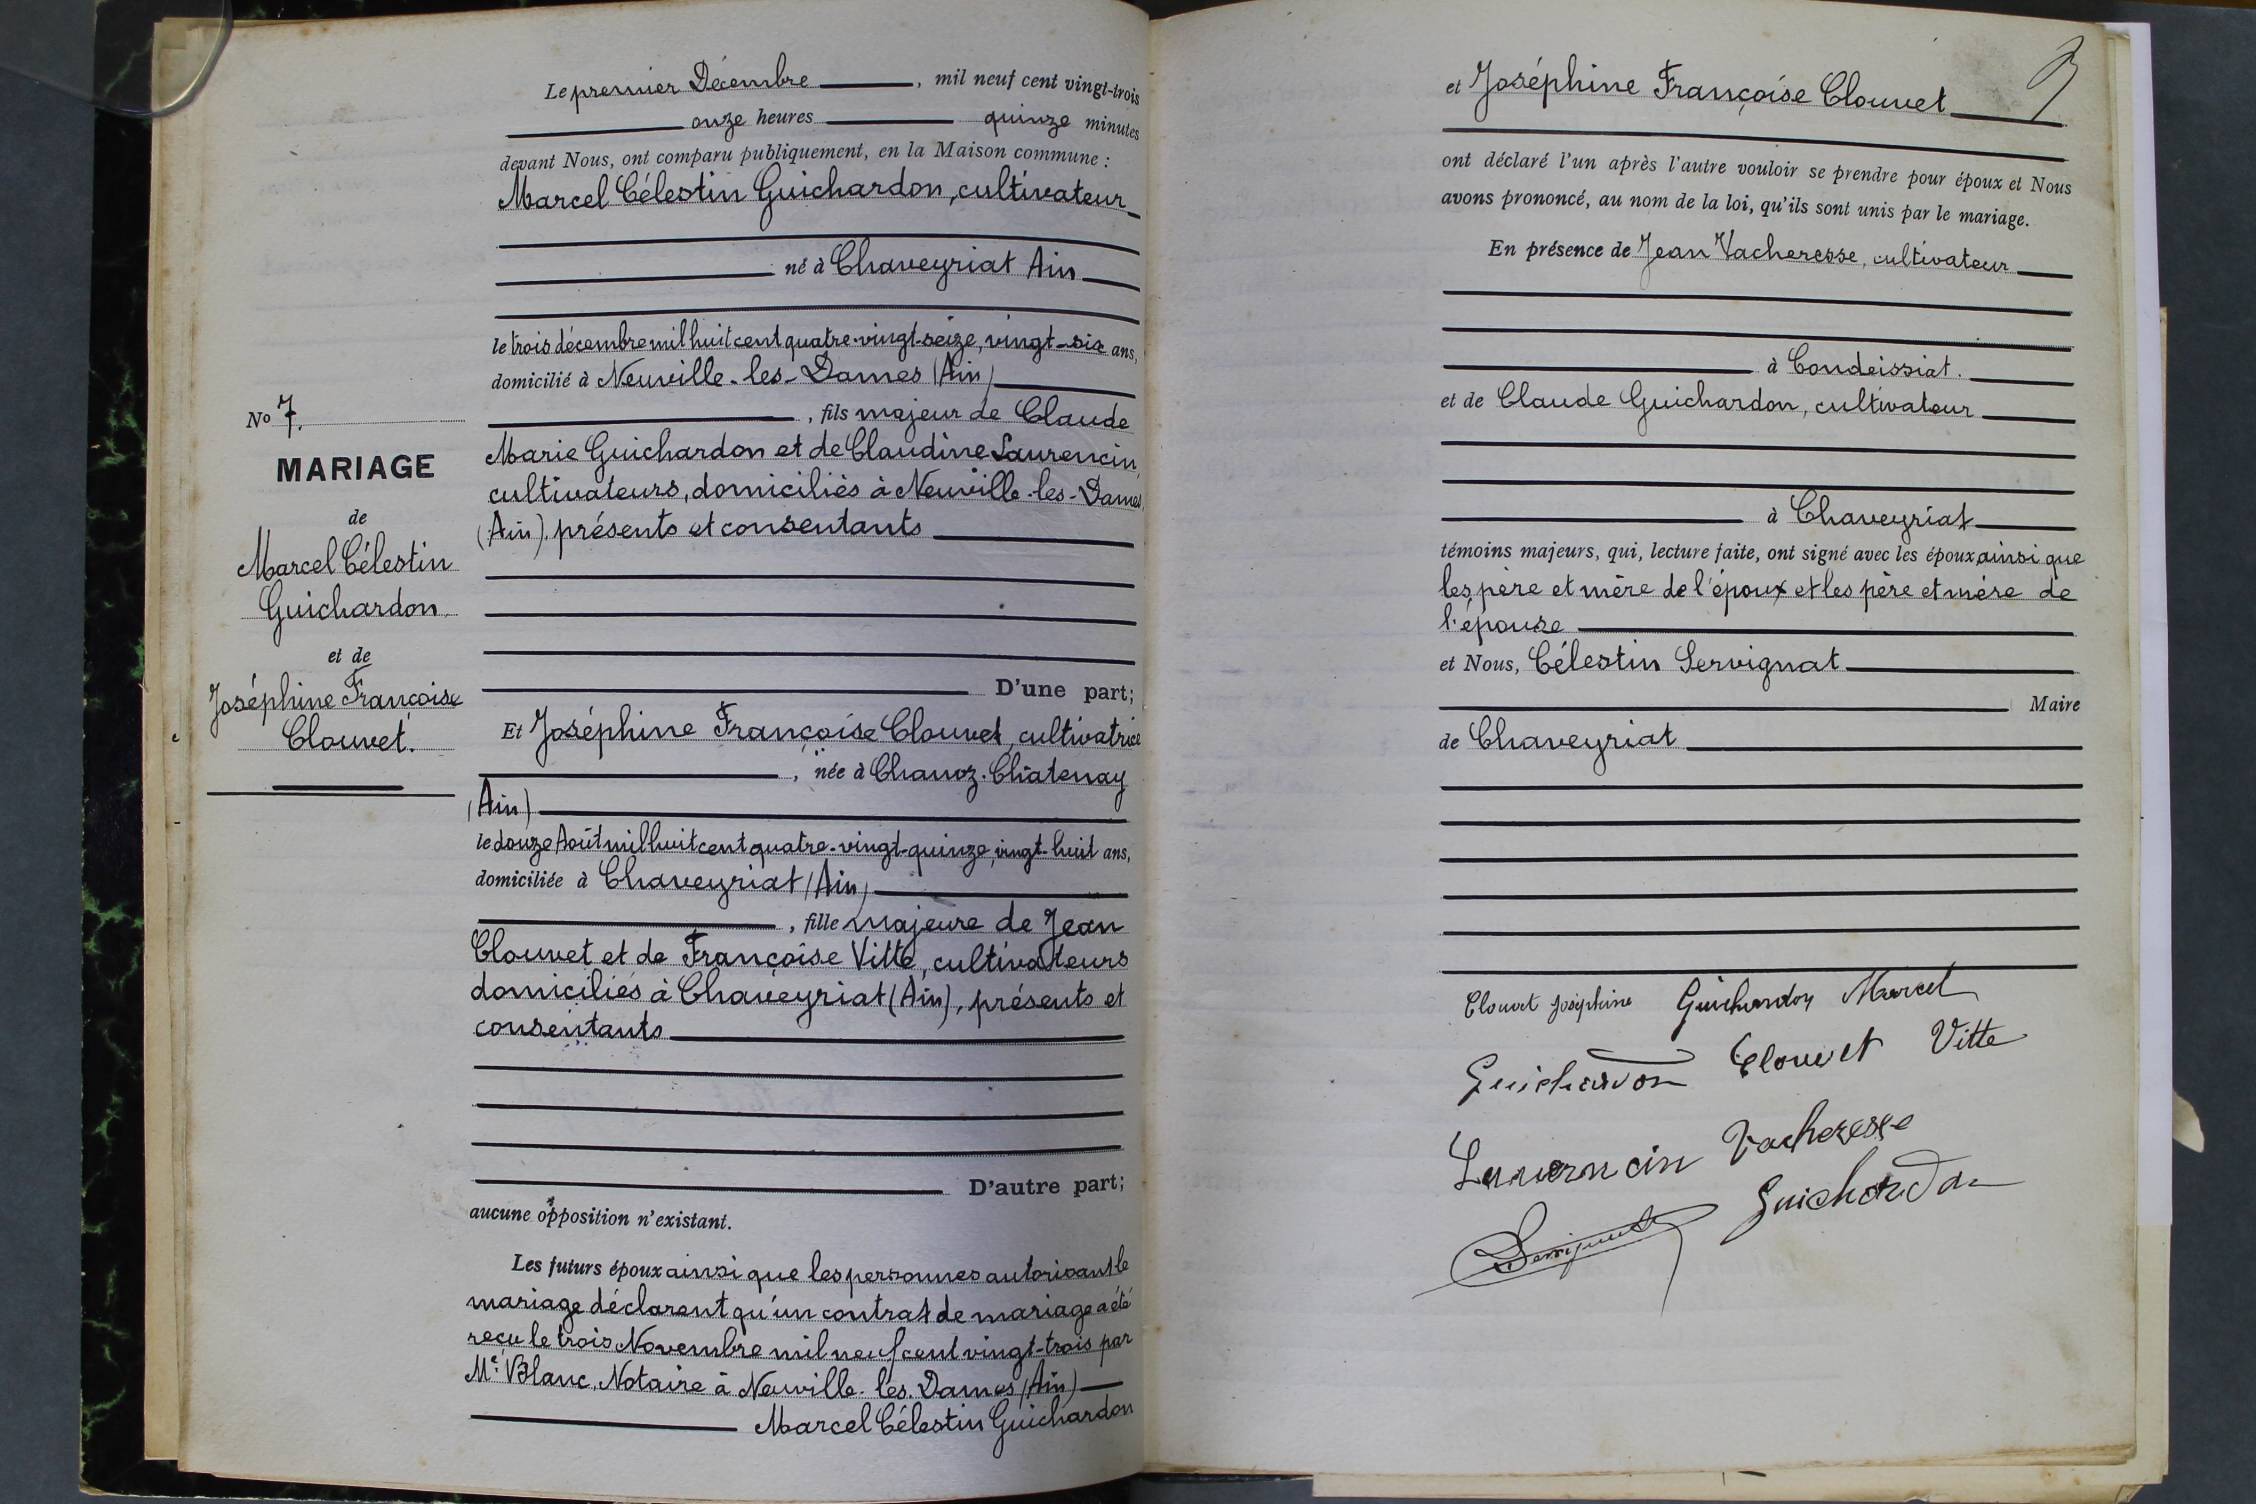 Le premier Décembre, mil neuf cent vingt-trois
onze heures quinze minutes
devant Nous, ont comparu publiquement, en la Maison commune :
Marcel Célestin Guichardon, cultivateur
né à Chaveyriat Ain
le trois décembre mil huit cent quatre-vingt-seize, vingt-six ans,
domicilié à Neuville-les-Dames (Ain)
, fils majeur de Claude
Marie Guichardon et de Claudine Laurencin,
cultivateurs, domiciliés à Neuville-les-Dames
(Ain), présents et consentants
D'une part;
Et Joséphine Françoise Clouvet, cultivatrice
, née à Chanoz-Châtenay
(Ain)
le douze Août mil huit cent quatre-vingt-quinze, vingt-huit ans,
domiciliée à Chaveyriat (Ain)
, fille majeure de Jean
Clouvet et de Françoise Vitte, cultivateurs
domiciliés à Chaveyriat (Ain), présents et
consentants
D'autre part;
aucune opposition n'existant.
Les futurs époux ainsi que les personnes autorisant le
mariage déclarent qu'un contrat de mariage a été
reçu le trois Novembre mil neuf cent vingt-trois par
Me Blanc, Notaire à Neuville-les-Dames (Ain)
Marcel Célestin Guichardon
No 7.
MARIAGE
de
Marcel Célestin
Guichardon
et de
Joséphine Françoise
Clouvet.
et Joséphine Françoise Clouvet
ont déclaré l'un après l'autre vouloir se prendre pour époux et Nous
avons prononcé, au nom de la loi, qu'ils sont unis par le mariage.
En présence de Jean Vacheresse, cultivateur
à Condeissiat.
et de Claude Guichardon, cultivateur
à Chaveyriat
témoins majeurs, qui, lecture faite, ont signé avec les époux ainsi que
les père et mère de l'époux et les père et mère de
l'épouse
et Nous, Célestin Servignat
Maire
de Chaveyriat
Clouvet Joséphine Guichardon Marcel
Guichardon Clouvet Vitte
Laurencin Vacheresse
Servignat Guichardon